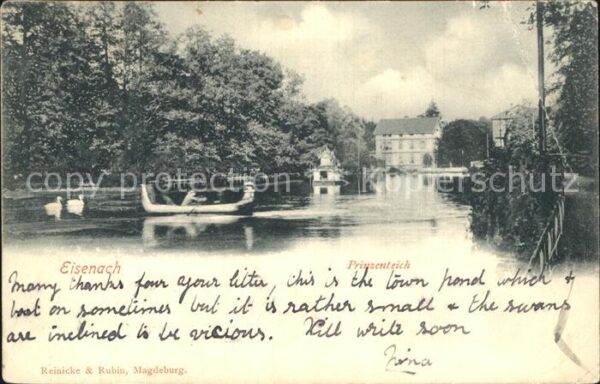 Copyrightschutz
Eisenach Prinzenteich
Many thanks four your letter, this is the town pond which +
boat on sometimes but it is rather small + the swans
are inclined to be vicious. Will write soon
Reinicke & Rubin, Magdeburg.